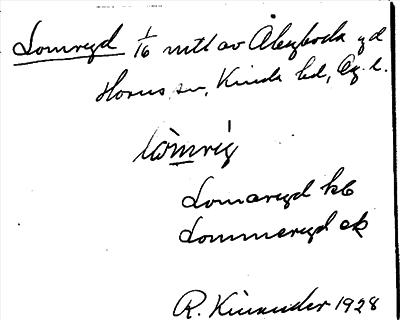 Lomryd 1/6 mtl av Åbyboda gd
Horns sn, Kinda hd, Ög. l.
lòmrig
Lomaryd hb
Lommeryd ek
R. Kinander 1928